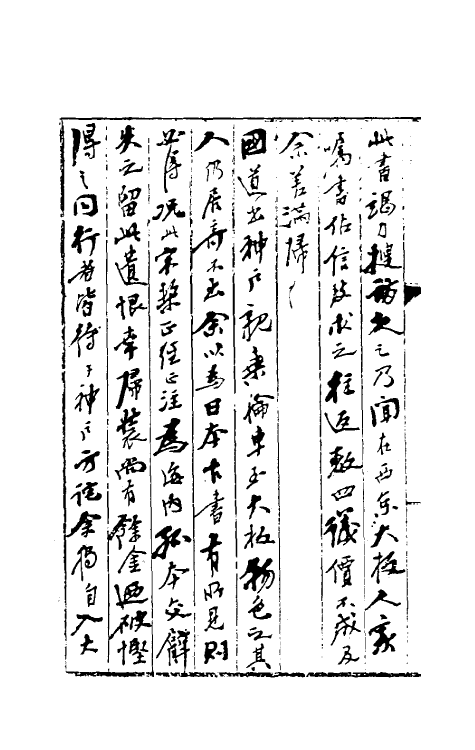 此書竭力搜訪久之乃聞在西京大板人家
囑書估信致求之往返數四議價不成及
余差滿歸
國道出神戶親乘輪車至大板物色之其
人仍居奇不出余以爲日本古書有所見則
必得況此宋槧正經正注爲海内孤本交臂
失之留此遺恨幸歸裝尚有餘金迺破慳
得之同行者皆待于神戶方詫余獨自入大